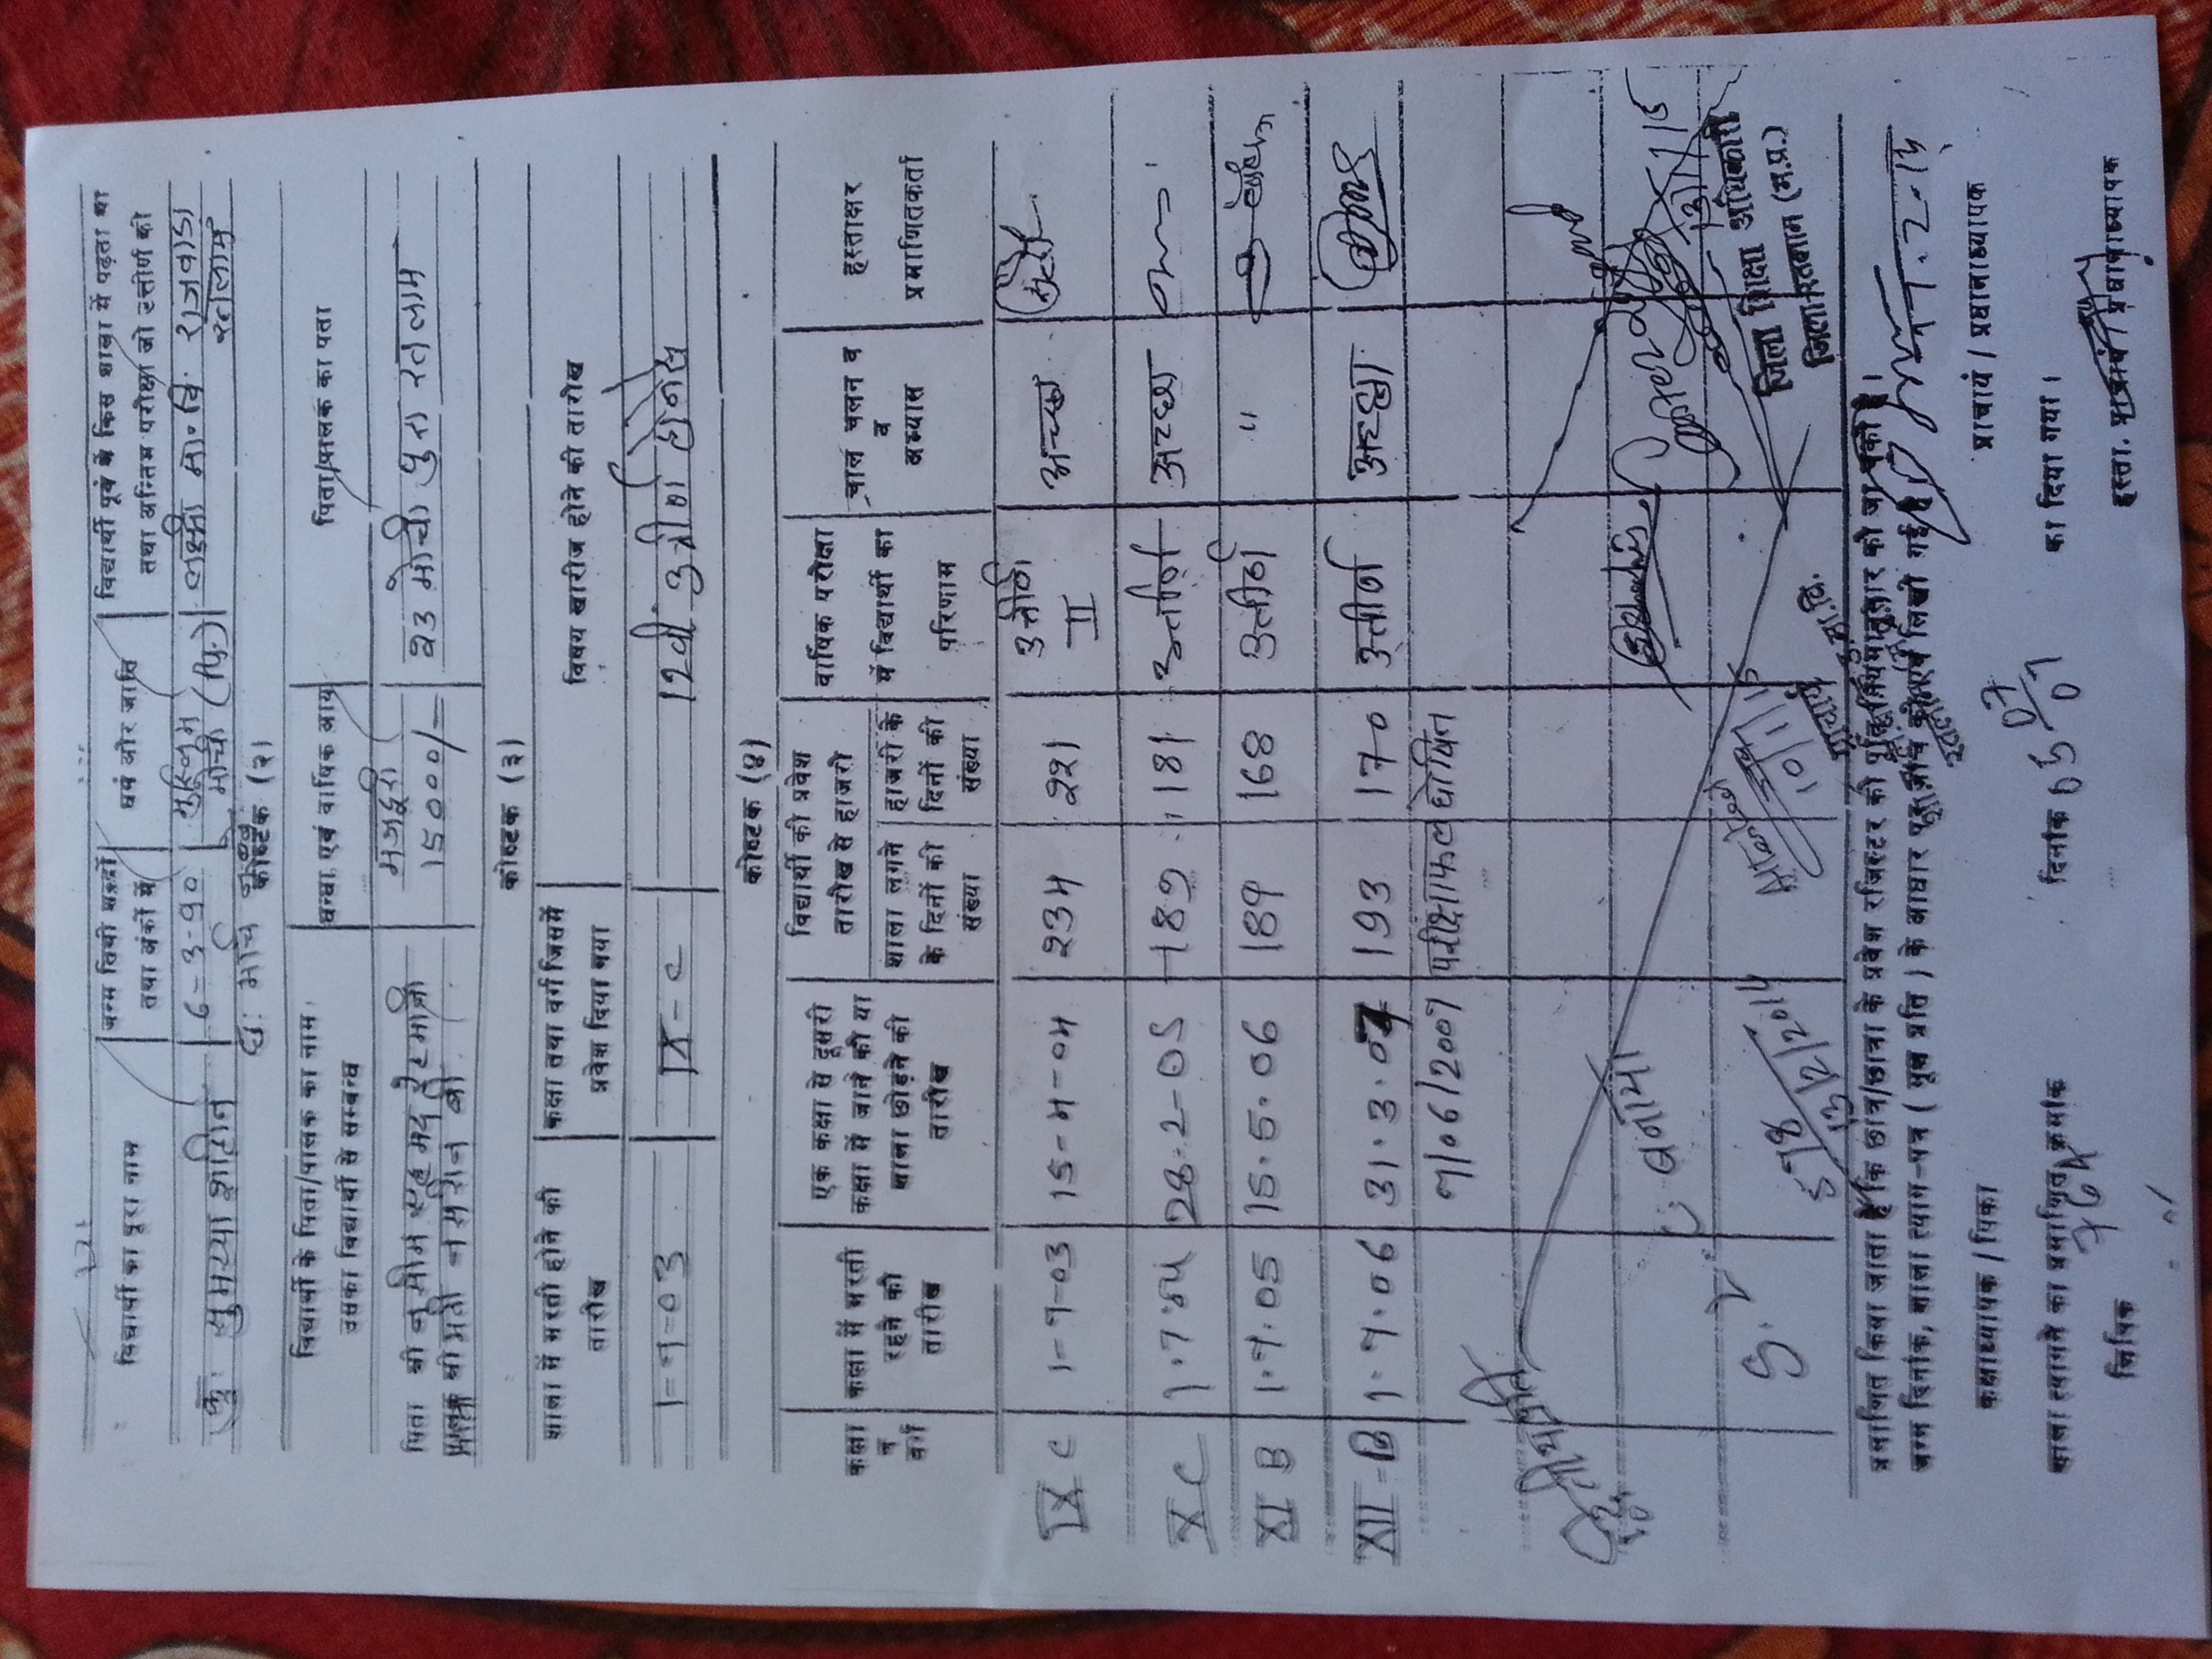 विद्यार्थी का पूरा नाम
जन्म तिथी शब्दों तथा अंकों में
धर्म और जाति
विद्यार्थी पूर्व में किस शाला में पढ़ता था तथा अन्तिम परीक्षा जो उत्तीर्ण की
कु. सुमय्या शाहीन
6-3-90
छः मार्च नब्बे
मुस्लिम मोची (पि.)
लक्ष्मी मा. वि. राजवाड़ा रतलाम
कोष्टक (२)
विद्यार्थी के पिता/पालक का नाम उसका विद्यार्थी से सम्बन्ध
धन्धा एवं वार्षिक आय
पिता/पालक का पता
पिता श्री नसीम एहमद
श्रीमती नसरीन बी
मजदूरी
15000/-
23 मोची पुरा रतलाम
कोष्टक (३)
शाला में भरती होने की तारीख
कक्षा तथा वर्ग जिसमें प्रवेश दिया गया
विषय खारीज होने की तारीख
1-7-03
IX-C
12वीं उत्तीर्ण होनेसे
कोष्टक (४)
कक्षा व वर्ग
कक्षा में भरती रहने की तारीख
एक कक्षा से दूसरी कक्षा में जाने की या शाला छोड़ने की तारीख
विद्यार्थी की प्रवेश तारीख से हाजरी
शाला लगने के दिनों की संख्या
हाजरी के दिनों की संख्या
वार्षिक परीक्षा में विद्यार्थी का परिणाम
चाल चलन व व अभ्यास
हस्ताक्षर प्रमाणितकर्ता
IX C 1-7-03 15-4-04 234 221 उत्तीर्ण II अच्छा
X C 1.7.04 28-2-05 189 181 उत्तीर्ण अच्छा
XI B 1.7.05 15.5.06 189 168 उत्तीर्ण "
XII-B 1.7.06 31.3.07 193 170 उत्तीर्ण अच्छा
7/06/2007 परीक्षाफल घोषित
द्वितीय प्रति
बनाया
578
13/2/2014
Attested
10/1/15
प्राचार्य
उ.मा.वि.
Counter Signed
13/1/15
जिला शिक्षा अधिकारी
जिला-रतलाम (म.प्र.)
प्रमाणित किया जाता है कि छात्र/छात्रा के प्रवेश रजिस्टर की पूर्ति नियमानुसार की जा चुकी है।
जन्म दिनांक, शाला त्याग-पत्र ( मूल प्रति ) के आधार पर जांच की एवं लिखी गई है
कक्षाध्यापक / पिका
प्राचार्य / प्रधानाध्यापक
शाला त्यागने का प्रमाणित क्रमांक 764
दिनांक 05 07/07 का दिया गया।
लिपिक
हस्ता. प्राचार्य / प्रधानाध्यापक